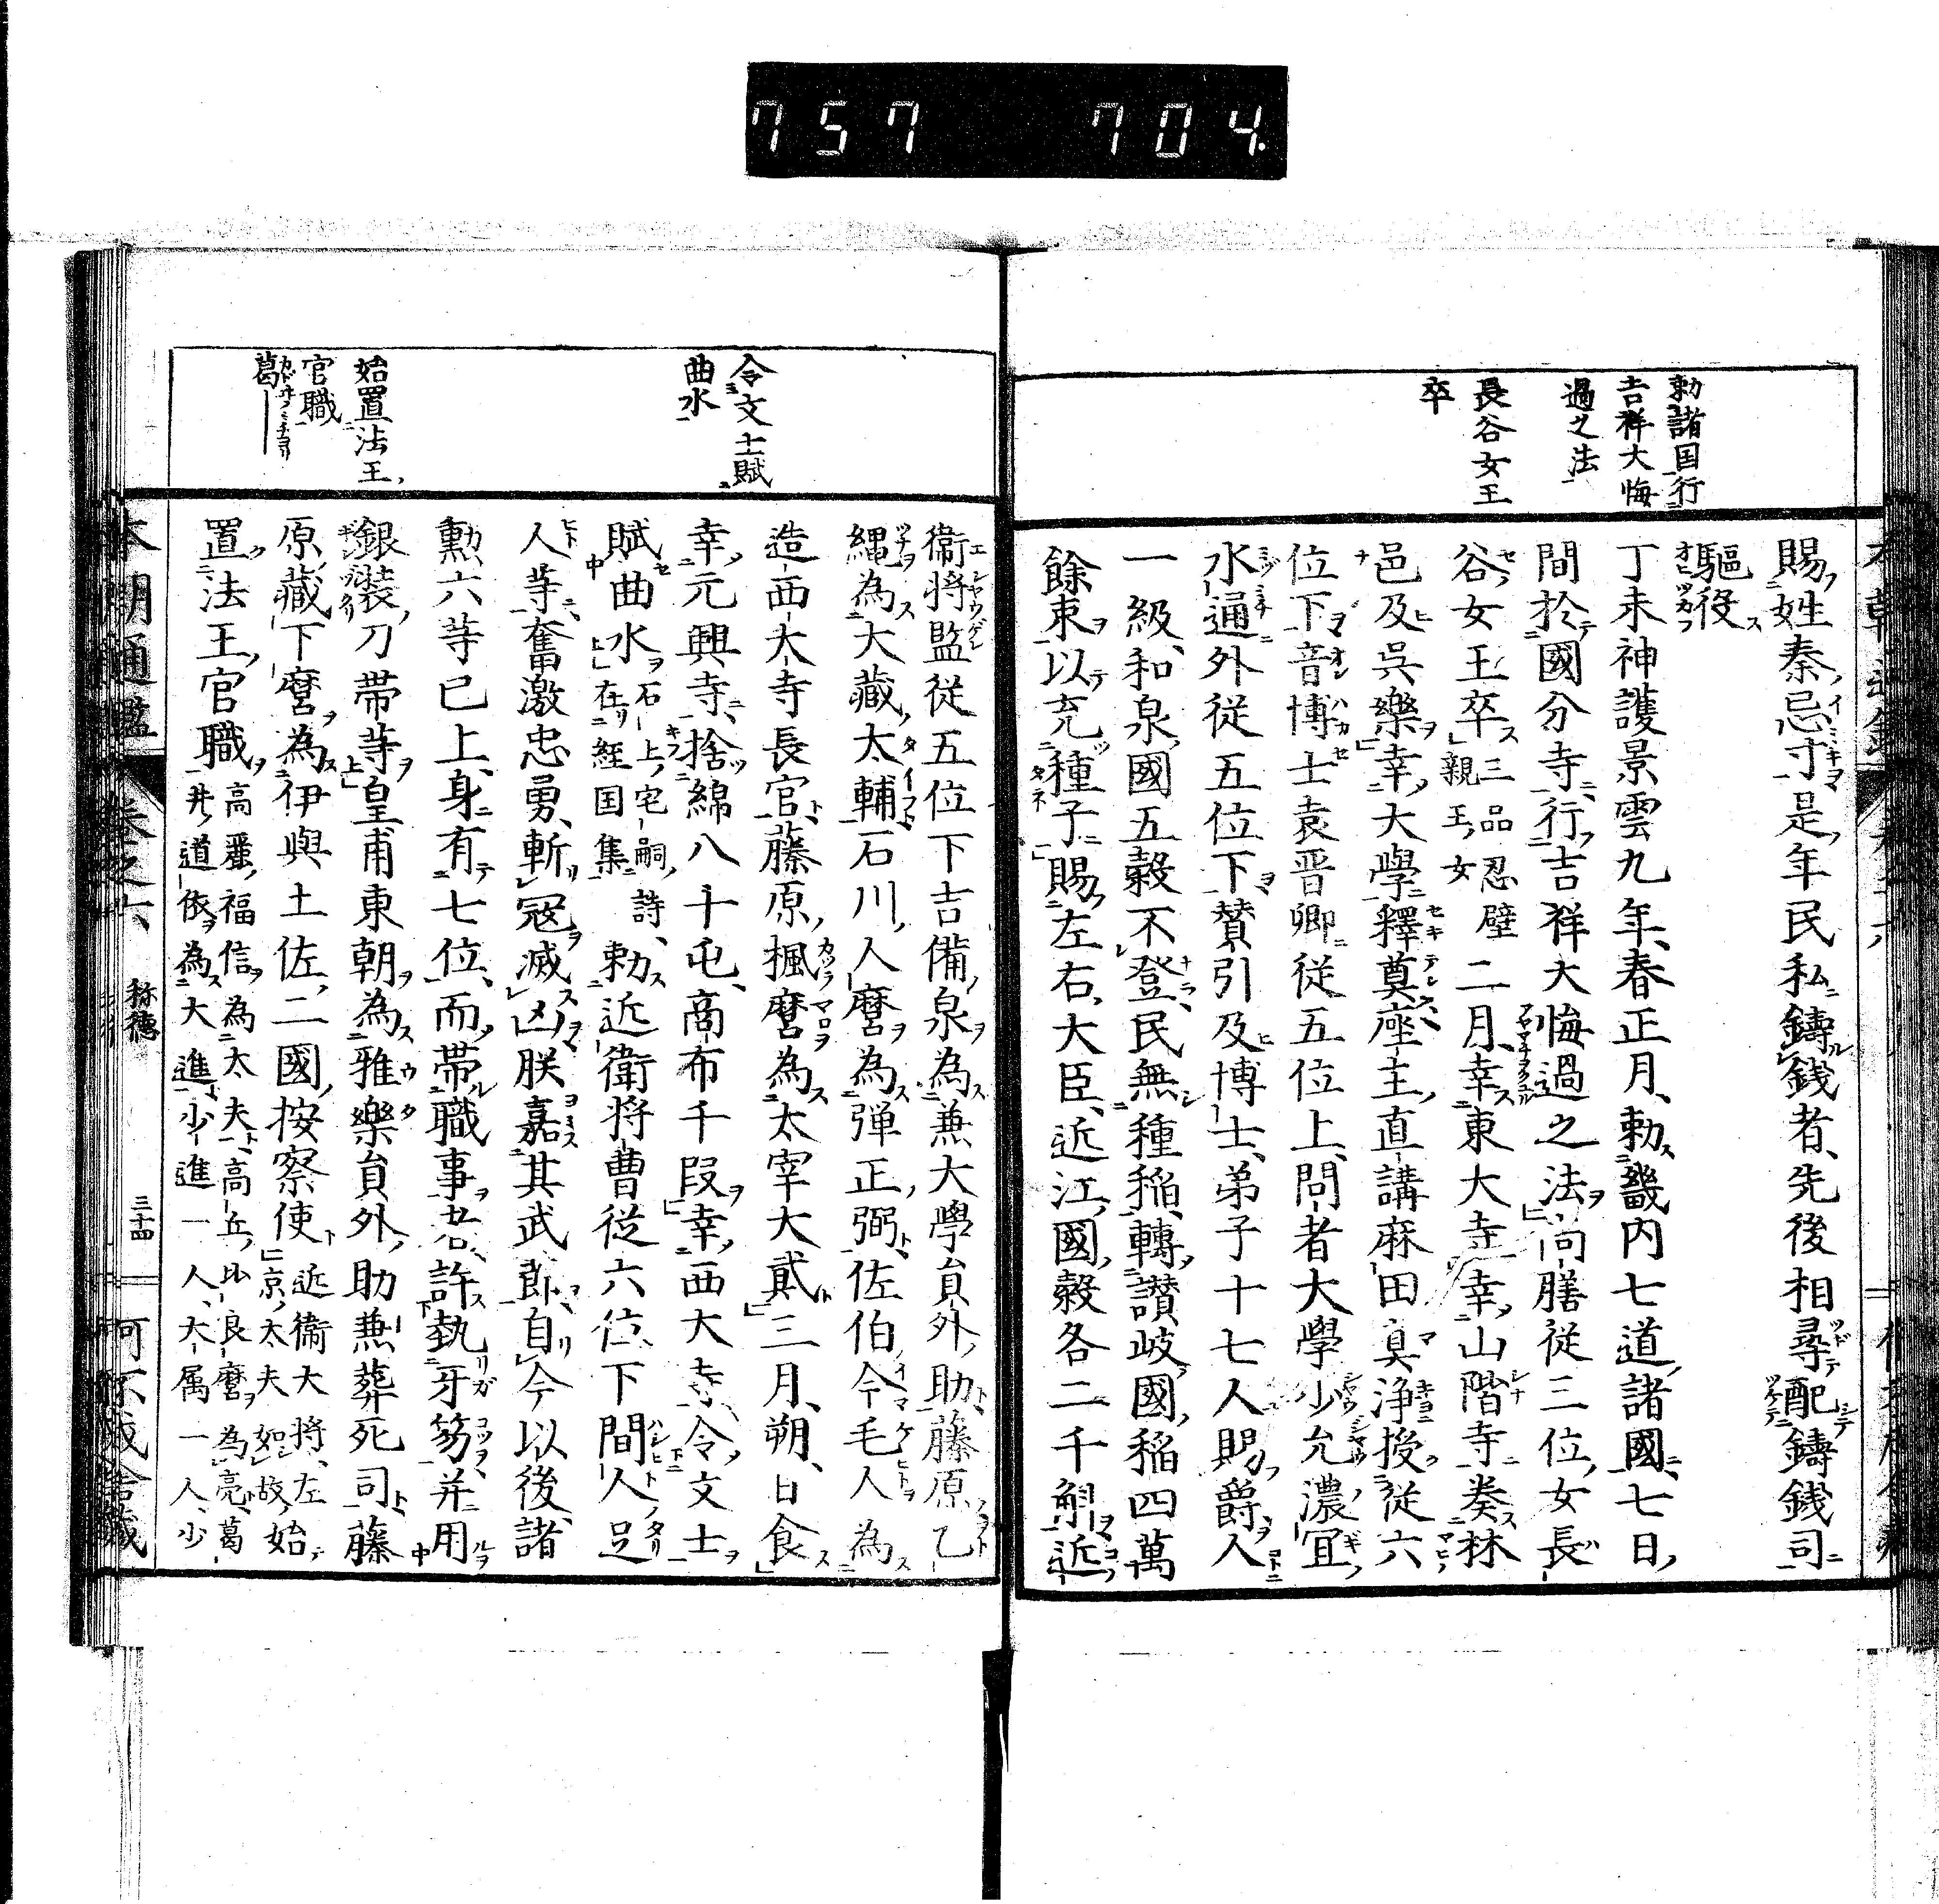 757 704.
勅諸国行
吉祥大悔
過之法
長谷女王
卒
賜姓秦忌寸是年民私鑄錢者先後相尋配鑄錢司
驅役
丁未神護景雲九年春正月勅畿内七道諸國七日
間於國分寺行吉祥大悔過之法尚膳從三位女長
谷女王卒三品忍壁親王女二月幸東大寺幸山階寺奏林
邑及吳樂幸大學釋奠座主直講麻田真浄授從六
位下音博士袁晋卿從五位上問者大學少允濃宜
水通外從五位下賛引及博士弟子十七人賜爵人
一級和泉國五穀不登民無種稲轉讃岐國稲四萬
餘束以充種子賜左右大臣近江國穀各二千斛近
令文士賦
曲水
始置法王
官職
葛
衞將監從五位下吉備泉為兼大學員外助藤原乙
縄為大藏太輔石川人麿為弾正弼佐伯今毛人為
造西大寺長官藤原楓麿為太宰大貳三月朔日食
幸元興寺捨綿八千屯商布千段幸西大寺令文士
賦曲水石上宅嗣詩在経国集勅近衛将曹從六位下間人足
人等奮激忠勇斬冦滅凶朕嘉其武即自今以後諸
勲六等已上身有七位而帯職事者許執牙笏并用
銀装刀帯等皇甫東朝為雅樂員外助兼葬死司藤
原藏下麿為伊與土佐二國按察使近衞大將左京太夫如故始
置法王官職高麗福信為太夫高丘比良麿為亮葛井道依為大進少進一人大属一人少
本朝通鑑 卷之六 称德 三十四